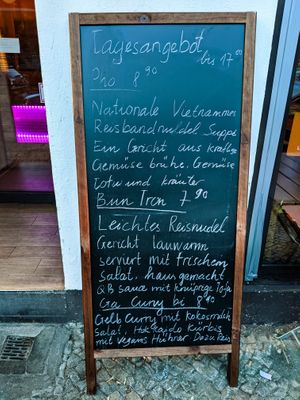 Tagesangebot
bis 17⁰⁰
Pho 8⁹⁰
Nationale Vietnammes
Reisbandnudel Suppe
Ein Gericht aus
Gemüse brühe. Gemüse
Tofu und kräuter
Bun Tron 7⁹⁰
Leichtes Reisnudel
Gericht lauwarm
serviert mit frischem
Salat. haus gemacht
Sauce mit Tofu
Ga Curry bi 8⁹⁰
Gelb Curry mit Kokosmilch
Salat, Hokkaido Kürbis
mit vegans Hühner Dazu Reis